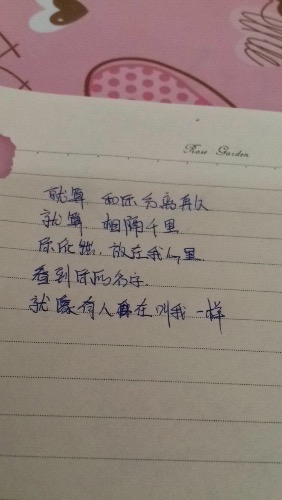 Rose Garden
就算 和你分离再久
就算 相隔千里
你依然，放在我心里
看到你的名字
就像有人在叫我一样